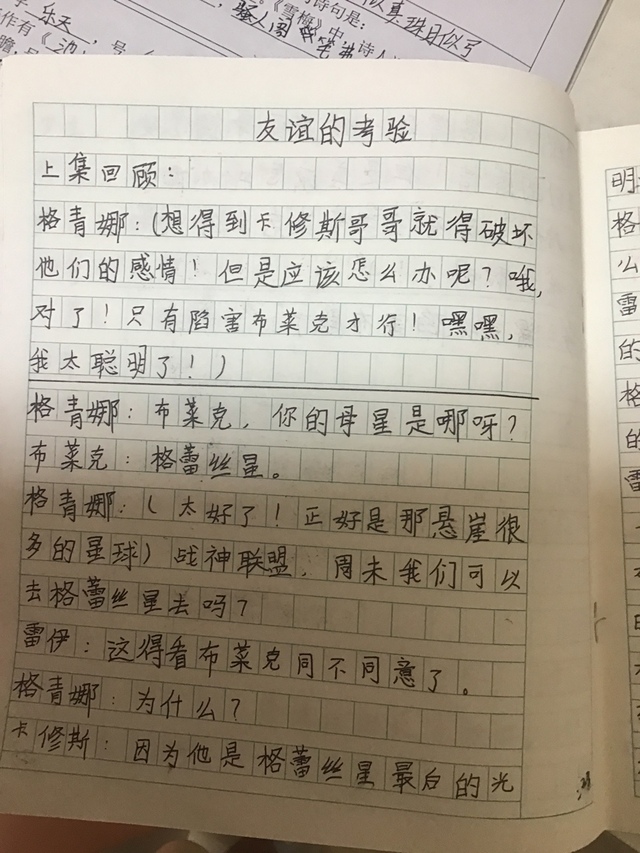 乐天
号
《雪梅》中,诗人
诗句是:
似真珠月似弓
骚人阁笔
作有《池
友谊的考验
上集回顾:
格青娜:(想得到卡修斯哥哥就得破坏
他们的感情!但是应该怎么办呢?哦,
对了!只有陷害布莱克才行!嘿嘿,
我太聪明了!)
格青娜:布莱克,你的母星是哪呀?
布莱克:格蕾丝星。
格青娜:(太好了!正好是那悬崖很
多的星球)战神联盟,周未我们可以
去格蕾丝星去吗?
雷伊:这得看布莱克同不同意了。
格青娜:为什么?
卡修斯:因为他是格蕾丝星最后的光
明
格
么
雷
的
格
的
雷